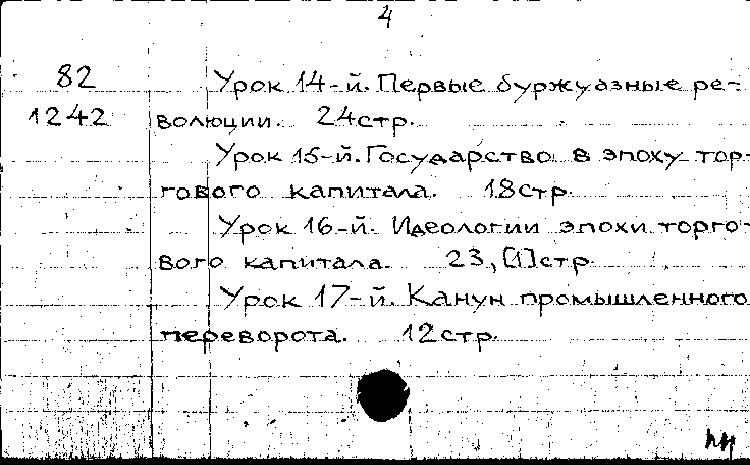 4
82
1242
Урок 14-й. Первые буржуазные ре-
волюции. 24стр.
Урок 15-й. Государство в эпоху тор-
гового капитала. 18стр.
Урок 16-й. Идеологии эпохи торго-
вого капитала. 23,[1]стр.
Урок 17-й. Канун промышленного
переворота. 12стр.